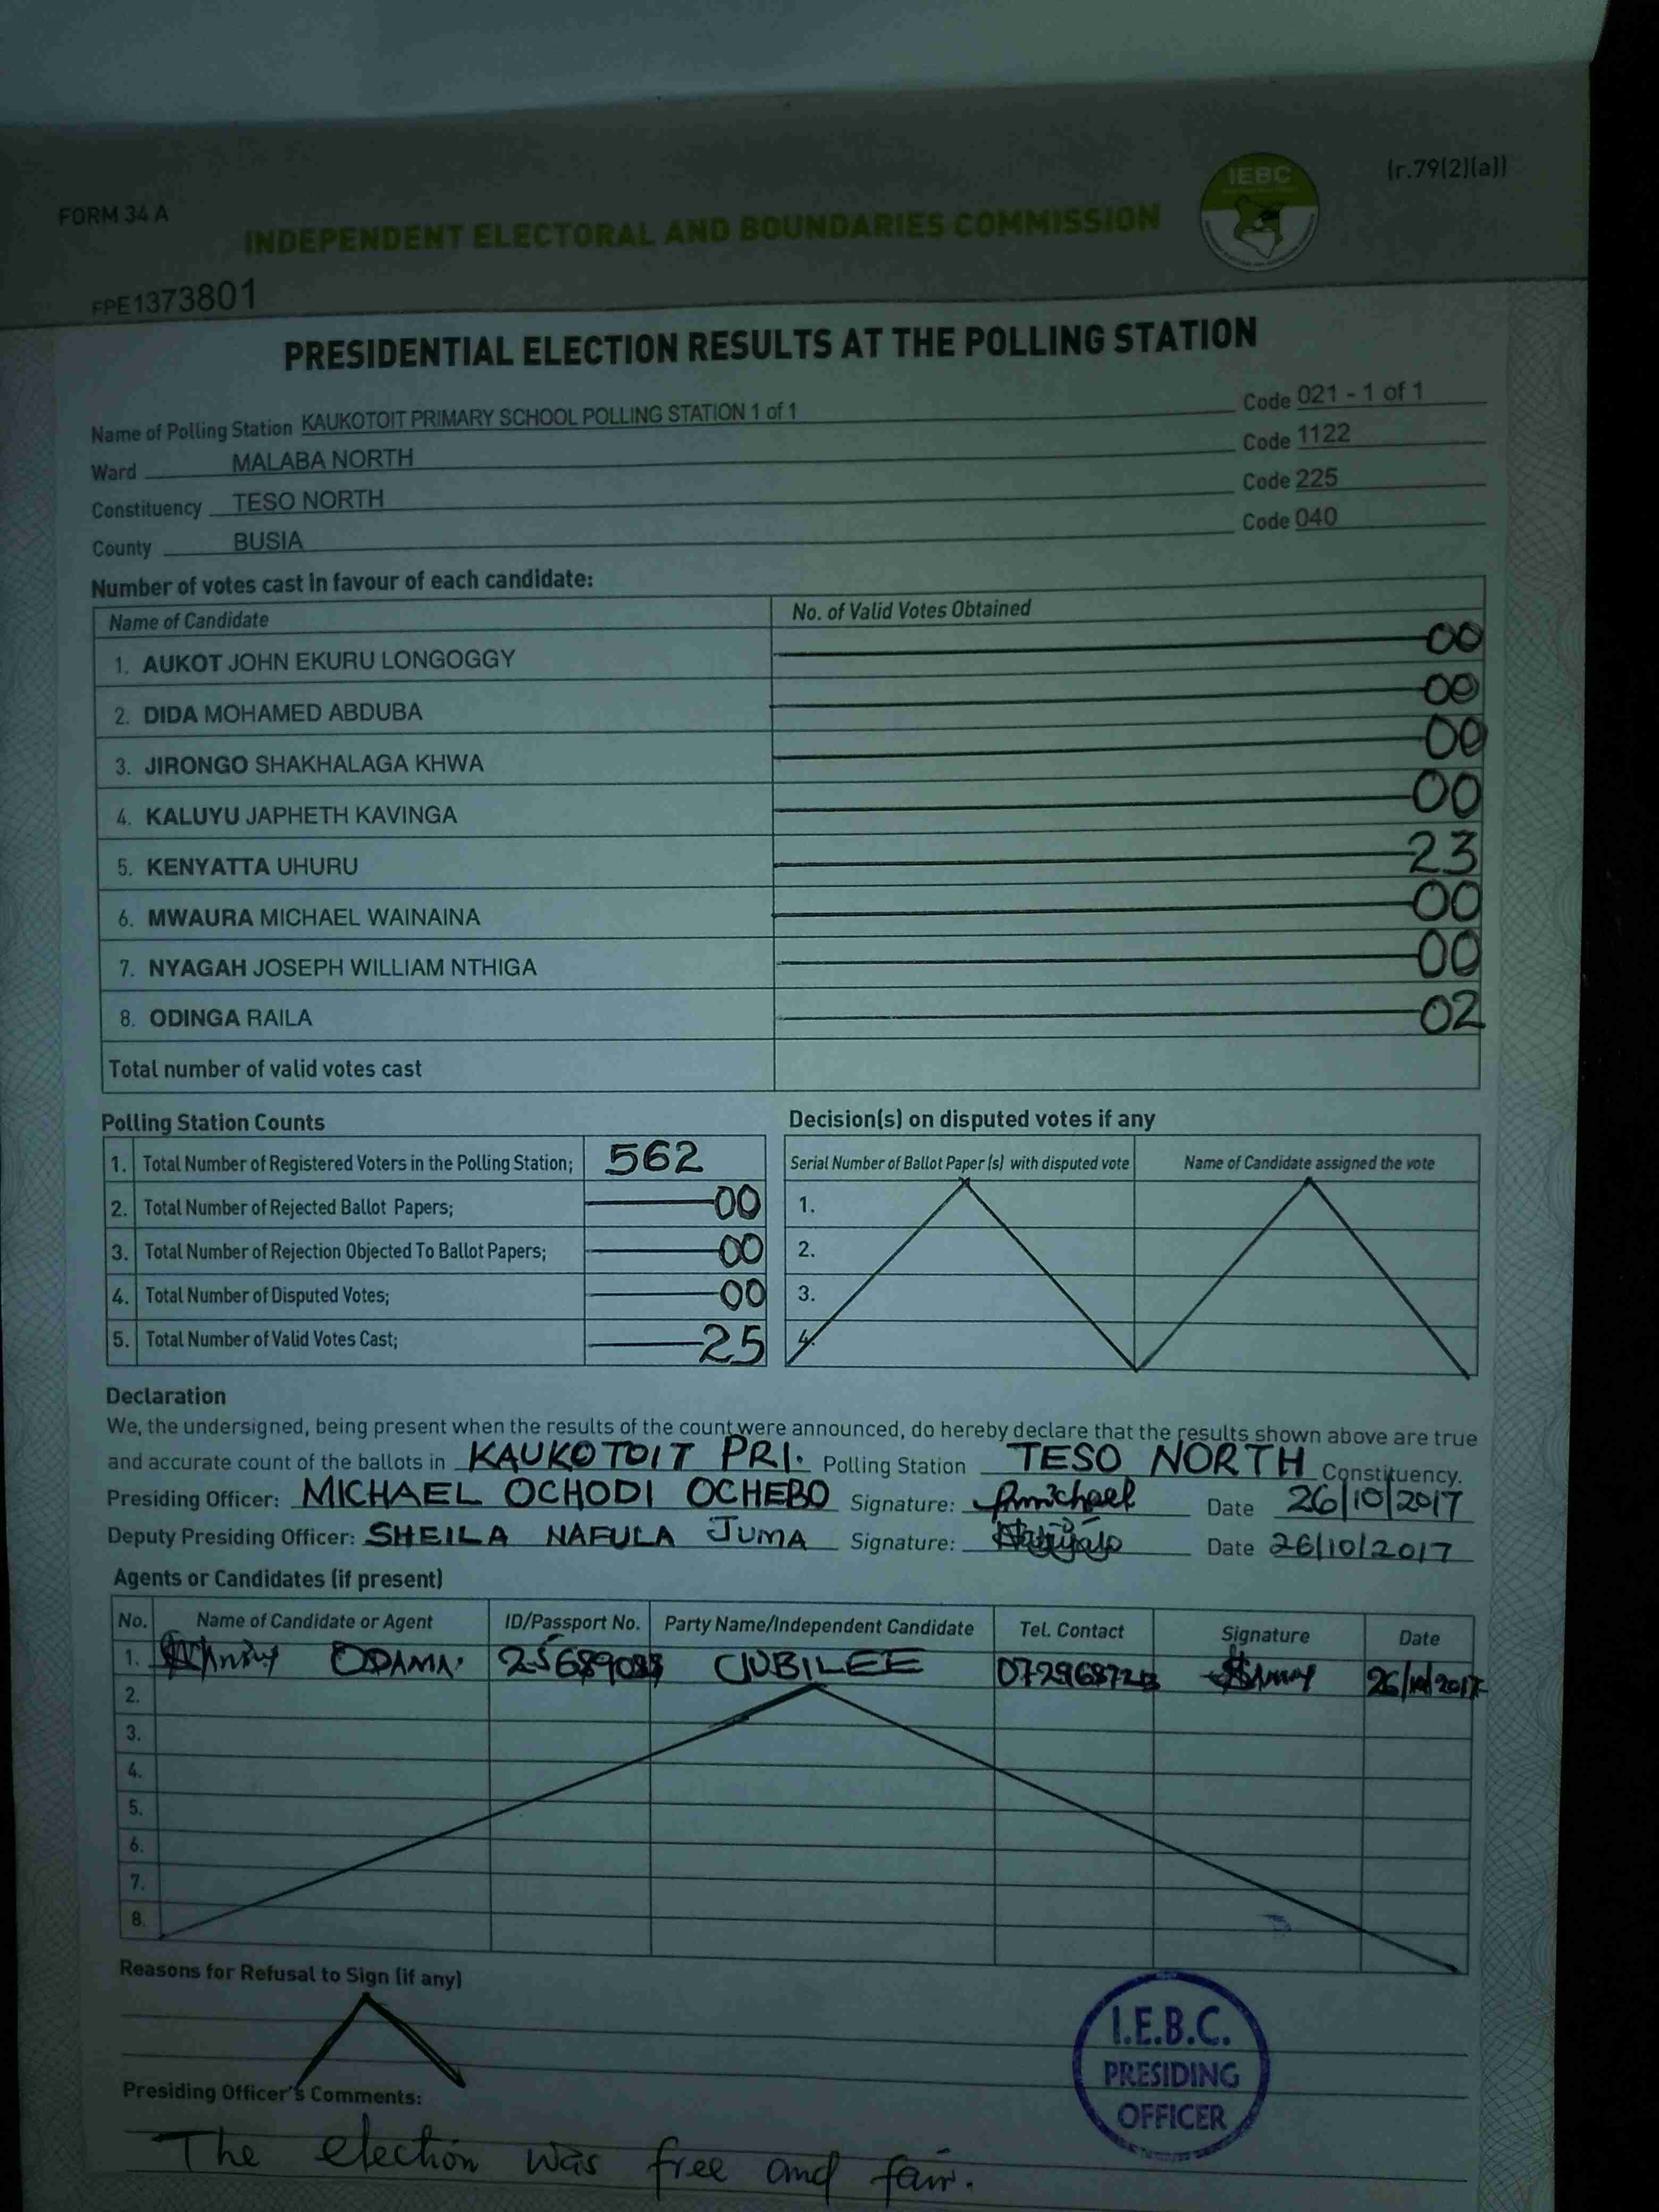 (r.79(2)(a))
FORM 34 A
IEBC
INDEPENDENT ELECTORAL AND BOUNDARIES COMMISSION
FPE1373801
PRESIDENTIAL ELECTION RESULTS AT THE POLLING STATION
Name of Polling Station KAUKOTOIT PRIMARY SCHOOL POLLING STATION 1 of 1 Code 021 - 1 of 1
Ward MALABA NORTH Code 1122
Constituency TESO NORTH Code 225
County BUSIA Code 040
Number of votes cast in favour of each candidate:
Name of Candidate No. of Valid Votes Obtained
1. AUKOT JOHN EKURU LONGOGGY 00
2. DIDA MOHAMED ABDUBA 00
3. JIRONGO SHAKHALAGA KHWA 00
4. KALUYU JAPHETH KAVINGA 00
5. KENYATTA UHURU 23
6. MWAURA MICHAEL WAINAINA 00
7. NYAGAH JOSEPH WILLIAM NTHIGA 00
8. ODINGA RAILA 02
Total number of valid votes cast
Polling Station Counts Decision(s) on disputed votes if any
Serial Number of Ballot Paper (s) with disputed vote Name of Candidate assigned the vote
1. Total Number of Registered Voters in the Polling Station; 562
2. Total Number of Rejected Ballot Papers; 00 1.
3. Total Number of Rejection Objected To Ballot Papers; 00 2.
4. Total Number of Disputed Votes; 00 3.
5. Total Number of Valid Votes Cast; 25 4.
Declaration
We, the undersigned, being present when the results of the count were announced, do hereby declare that the results shown above are true
and accurate count of the ballots in KAUKOTOIT PRI. Polling Station TESO NORTH Constituency.
Presiding Officer: MICHAEL OCHODI OCHEBO Signature: Date 26/10/2017
Deputy Presiding Officer: SHEILA NAFULA JUMA Signature: Date 26/10/2017
Agents or Candidates (if present)
No. Name of Candidate or Agent ID/Passport No. Party Name/Independent Candidate Tel. Contact Signature Date
1. ODAMA JUBILEE 26/10/2017
2.
3.
4.
5.
6.
7.
8.
Reasons for Refusal to Sign (if any)
I.E.B.C.
PRESIDING
OFFICER
Presiding Officer's Comments:
The election was free and fair.